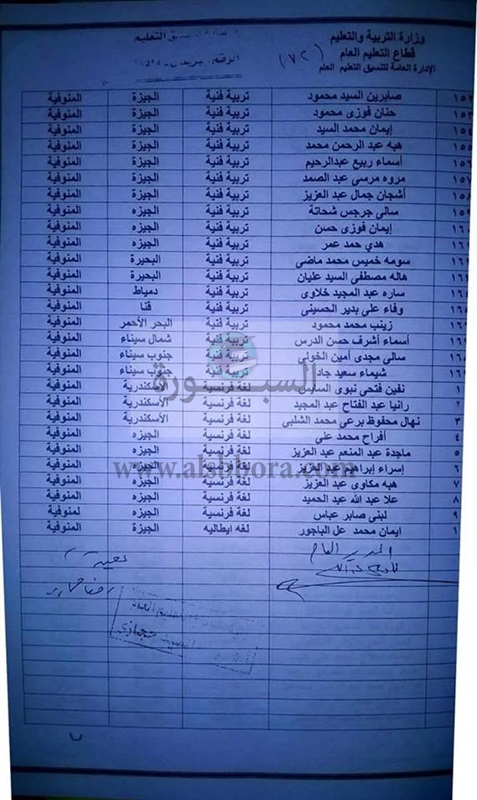 وزارة التربية والتعليم
قطاع التعليم العام
الإدارة العامة لتنسيق التعليم العام
(٧٢)
التعليم
الرقم
١٥٢ صابرين السيد محمود تربية فنية الجيزة المنوفية
١٥٣ حنان فوزى محمود تربية فنية الجيزة المنوفية
١٥٤ إيمان محمد السيد تربية فنية الجيزة المنوفية
١٥٥ هبه عبد الرحمن محمد تربية فنية الجيزة المنوفية
١٥٦ أسماء ربيع عبدالرحيم تربية فنية الجيزة المنوفية
١٥٧ مروه مرسى عبد الصمد تربية فنية الجيزة المنوفية
١٥٨ أشجان جمال عبد العزيز تربية فنية الجيزة المنوفية
١٥٩ سالى جرجس شحاتة تربية فنية الجيزه المنوفية
١٦٠ إيمان فوزى حسن تربية فنية الجيزه المنوفية
١٦١ هدي حمد عمر تربية فنية الجيزه المنوفية
١٦٢ سومه خميس محمد ماضى تربية فنية البحيرة المنوفية
١٦٣ هاله مصطفى السيد عليان تربية فنية البحيرة المنوفية
ساره عبد المجيد خلاوى تربية فنية دمياط المنوفية
وفاء على بدير الحسينى تربية فنية قنا المنوفية
زينب محمد محمود تربية فنية البحر الأحمر المنوفية
أسماء أشرف حسن الدرس تربية فنية شمال سيناء المنوفية
سالى مجدى أمين الخولى تربية فنية جنوب سيناء المنوفية
شيماء سعيد جاد تربية فنية جنوب سيناء المنوفية
السبورة
١ نفين فتحي نبوى لغة فرنسية الأسكندرية المنوفية
٢ رانيا عبد الفتاح عبد المجيد لغة فرنسية الأسكندرية المنوفية
٣ نهال محفوظ برعى محمد الشلبى لغة فرنسية الأسكندرية المنوفية
٤ أفراح محمد على لغة فرنسية الجيزه المنوفية
٥ ماجدة عبد المنعم عبد العزيز لغة فرنسية الجيزه المنوفية
www.alsbbora.com
٦ إسراء إبراهيم عبد العزيز لغة فرنسية الجيزه المنوفية
٧ هبه مكاوى عبد العزيز لغة فرنسية الجيزه المنوفية
٨ علا عبد الله عبد الحميد لغة فرنسية الجيزه المنوفية
٩ لبنى صابر عباس لغة فرنسية الجيزه لمنوفية
١ ايمان محمد عل الباجور لغه ايطاليه الجيزة المنوفية
المدير العام
حجازى
٧